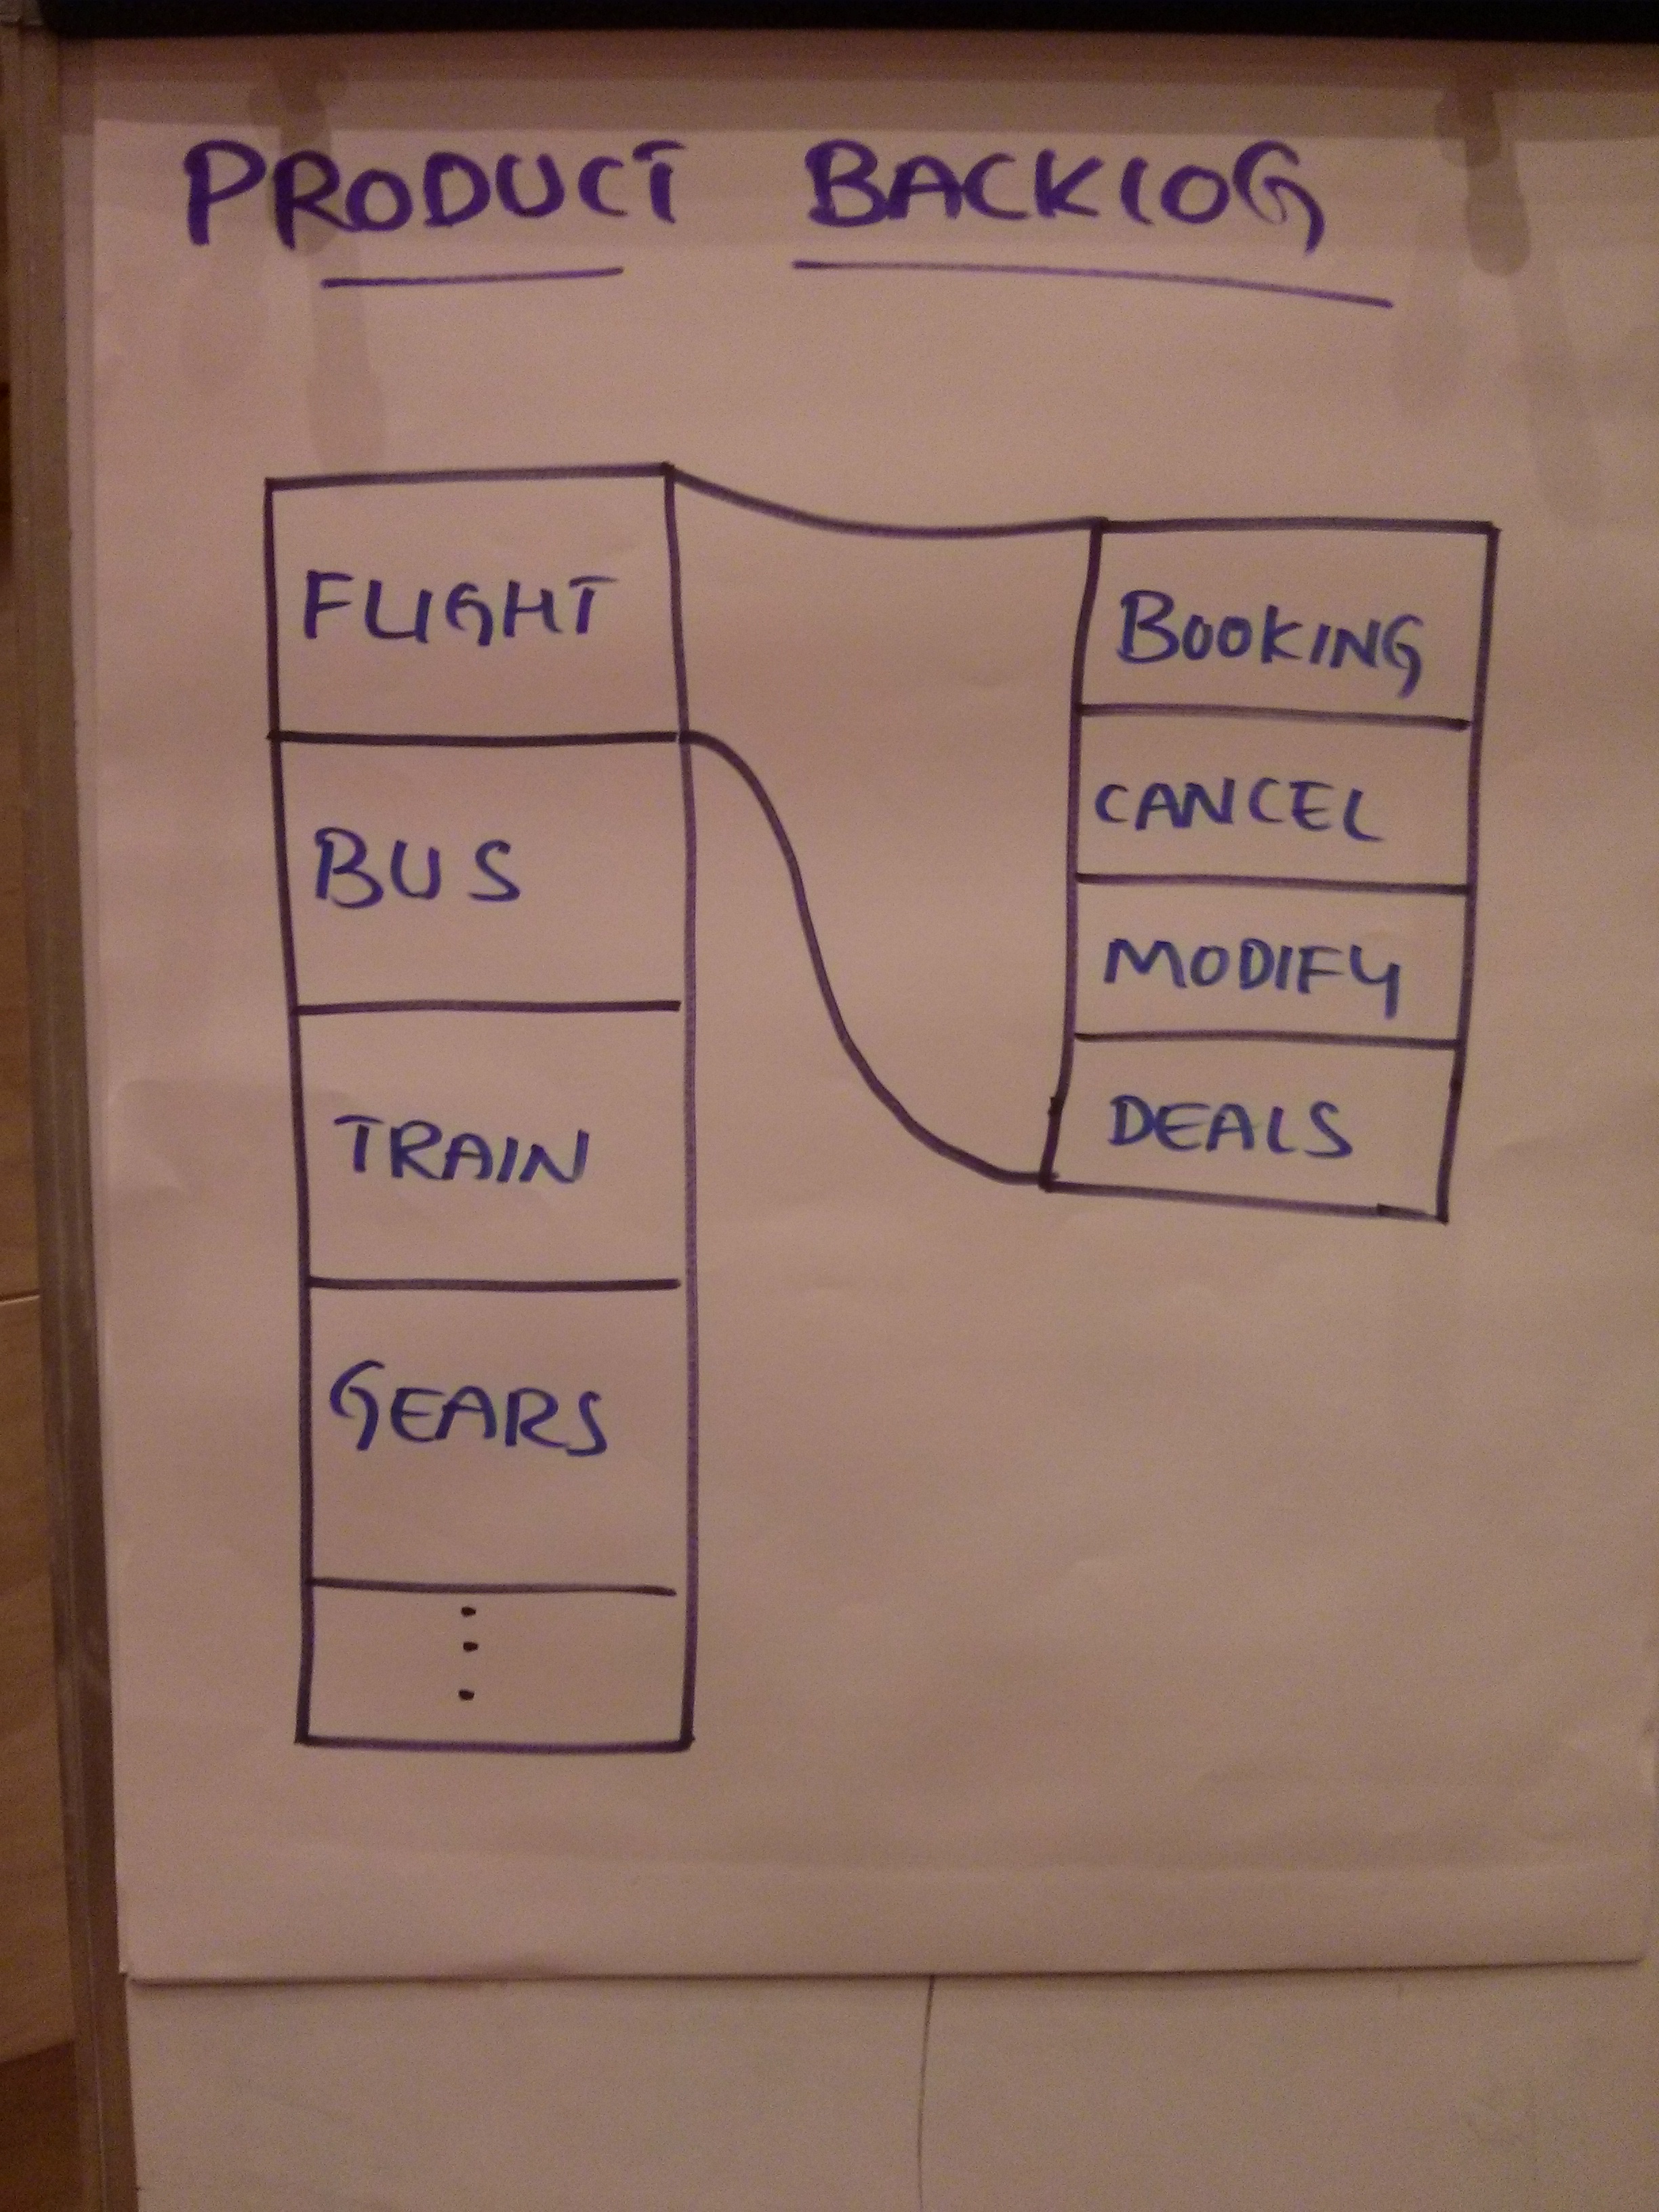 PRODUCT BACKLOG
FLIGHT
BUS
TRAIN
GEARS
BOOKING
CANCEL
MODIFY
DEALS